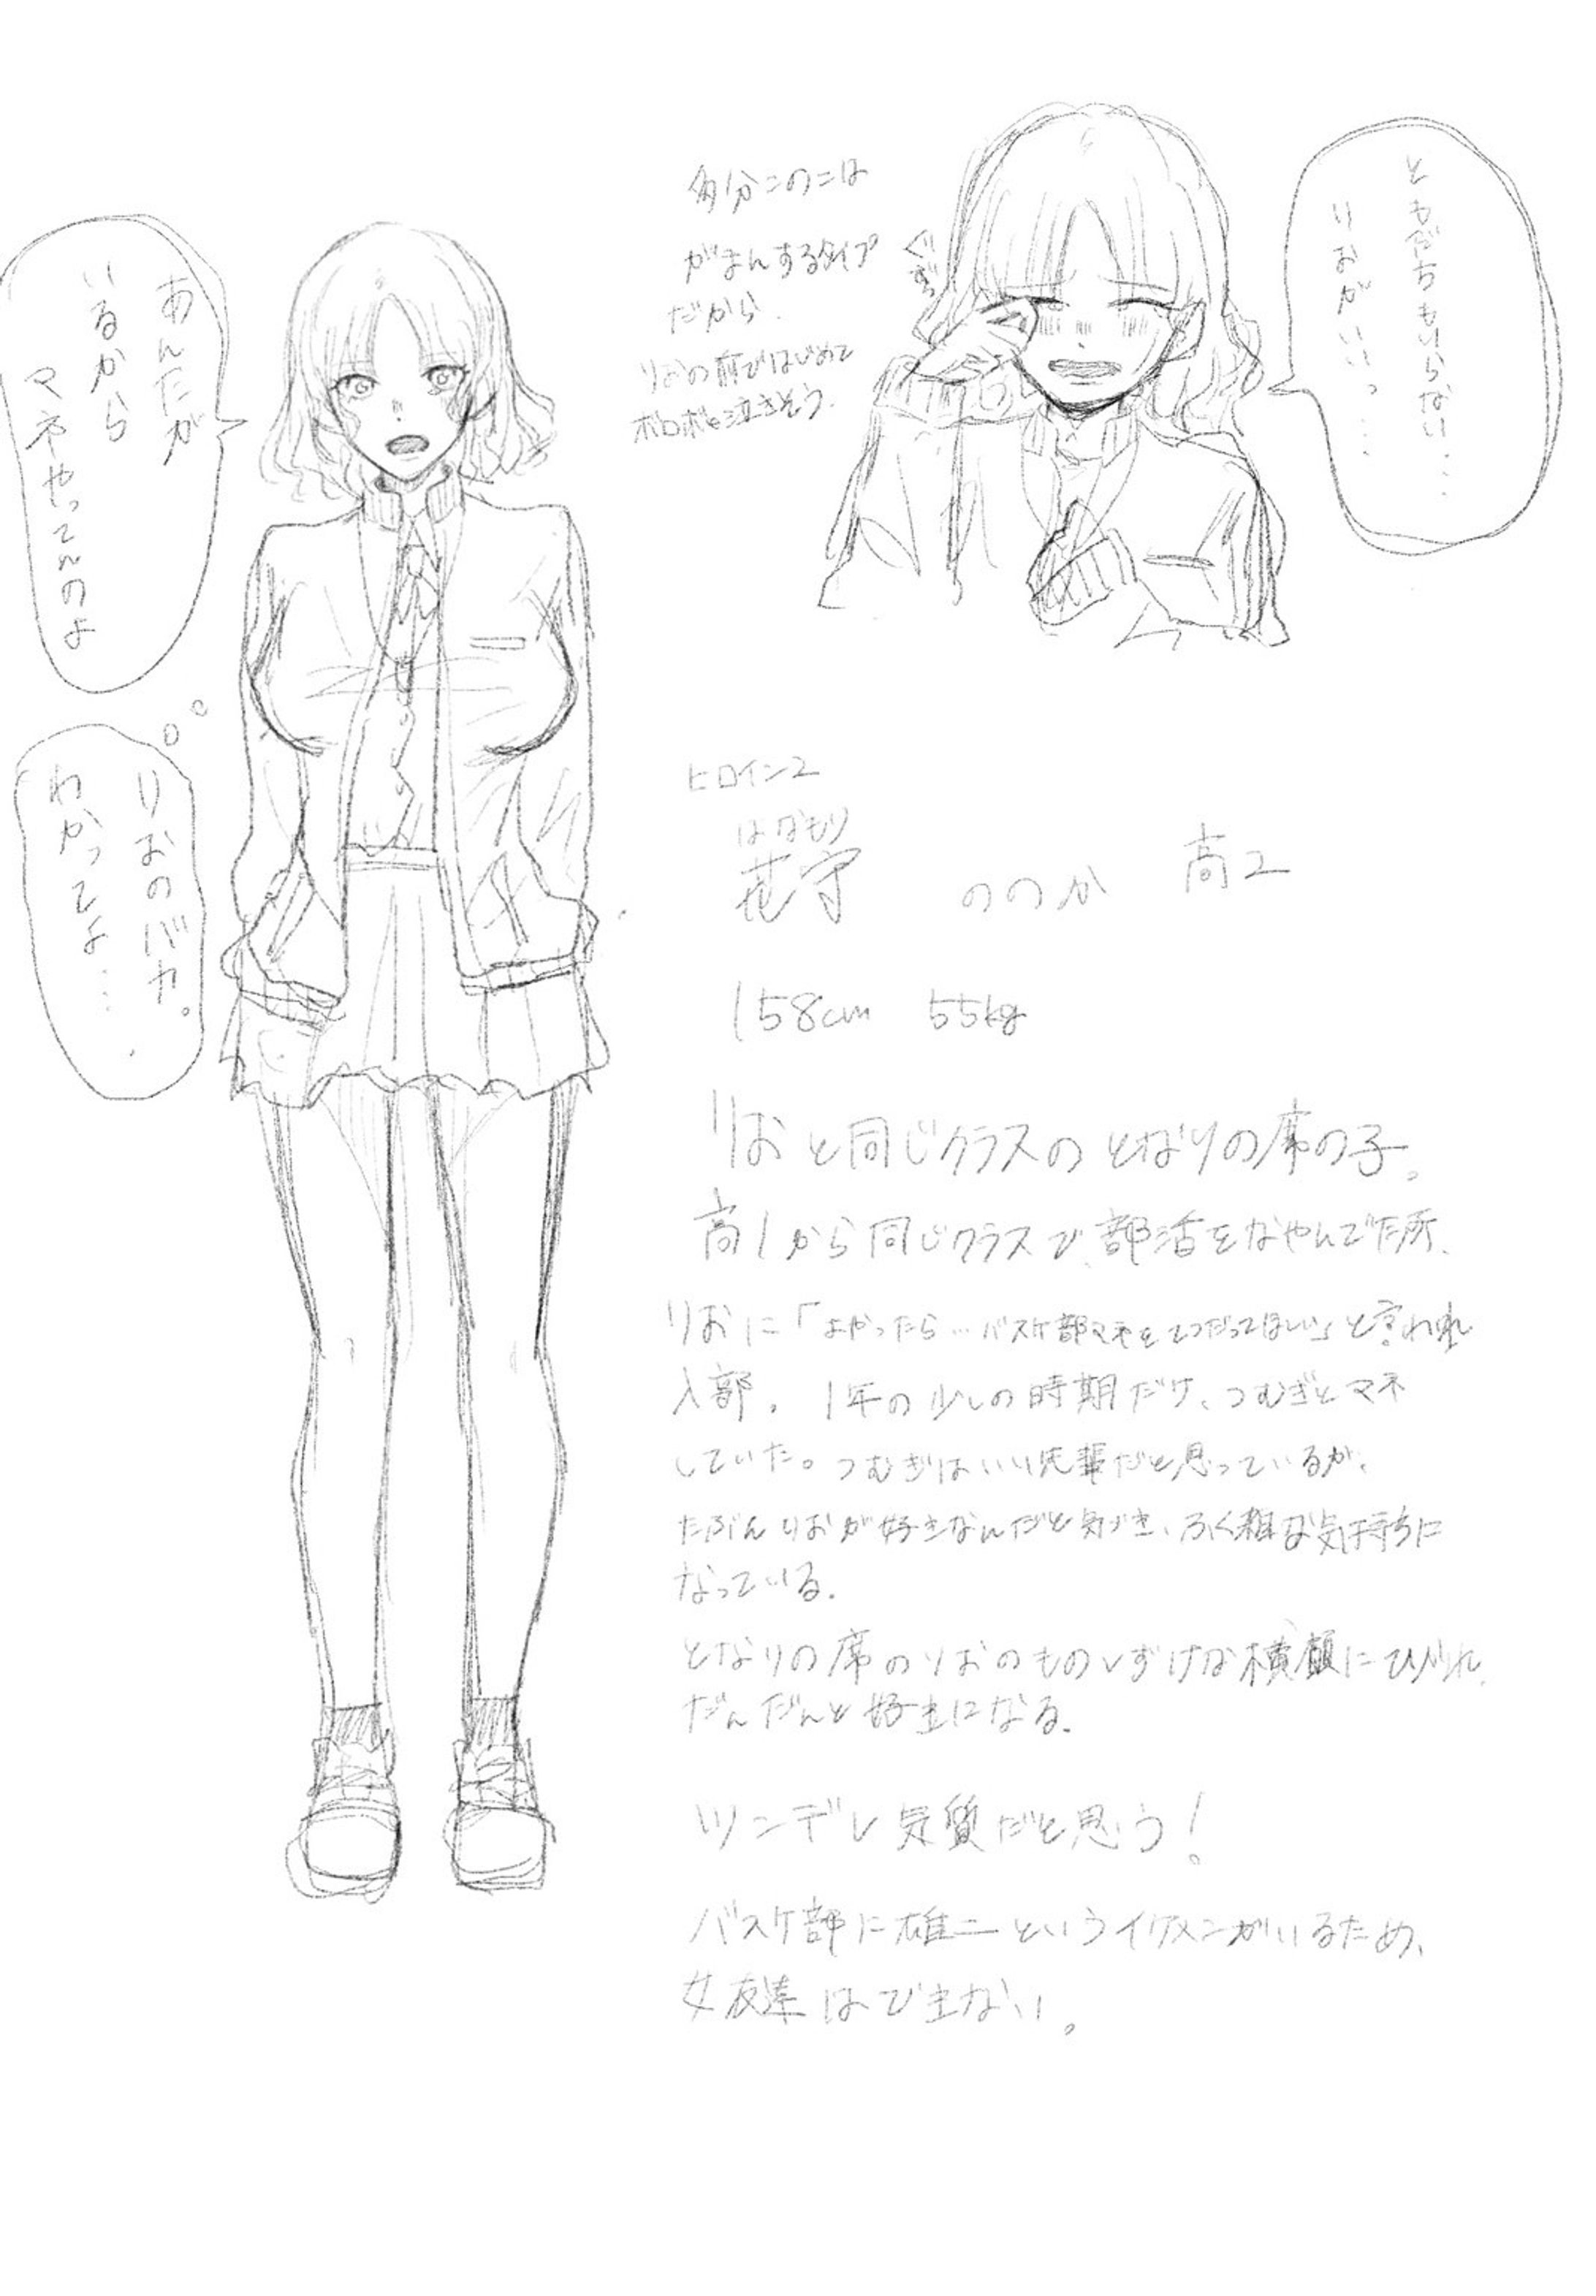 ともだちもいらない……
りおがいいっ……
多分このこは
がまんするタイプ
だから、
りおの前ではじめて
ボロボロ泣きそう。
ぐずっ
あんたが
いるから
マネやってんのよ
りおのバカ。
わかってよ……
ヒロイン2
はなもり
花守 ののか 高2
158cm 55kg
りおと同じクラスのとなりの席の子。
高1から同じクラスで、部活をなやんでた所、
りおに「よかったら…バスケ部マネをてつだってほしい」と言われ
入部。1年の少しの時期だけ、つむぎとマネ
していた。つむぎはいい先輩だと思っているが、
たぶんりおが好きなんだと気づき、ふく雑な気持ちに
なっている。
となりの席のりおのものしずけな横顔にひかれ、
だんだんと好きになる。
ツンデレ気質だと思う!
バスケ部に雄二というイケメンがいるため、
女友達はできない。